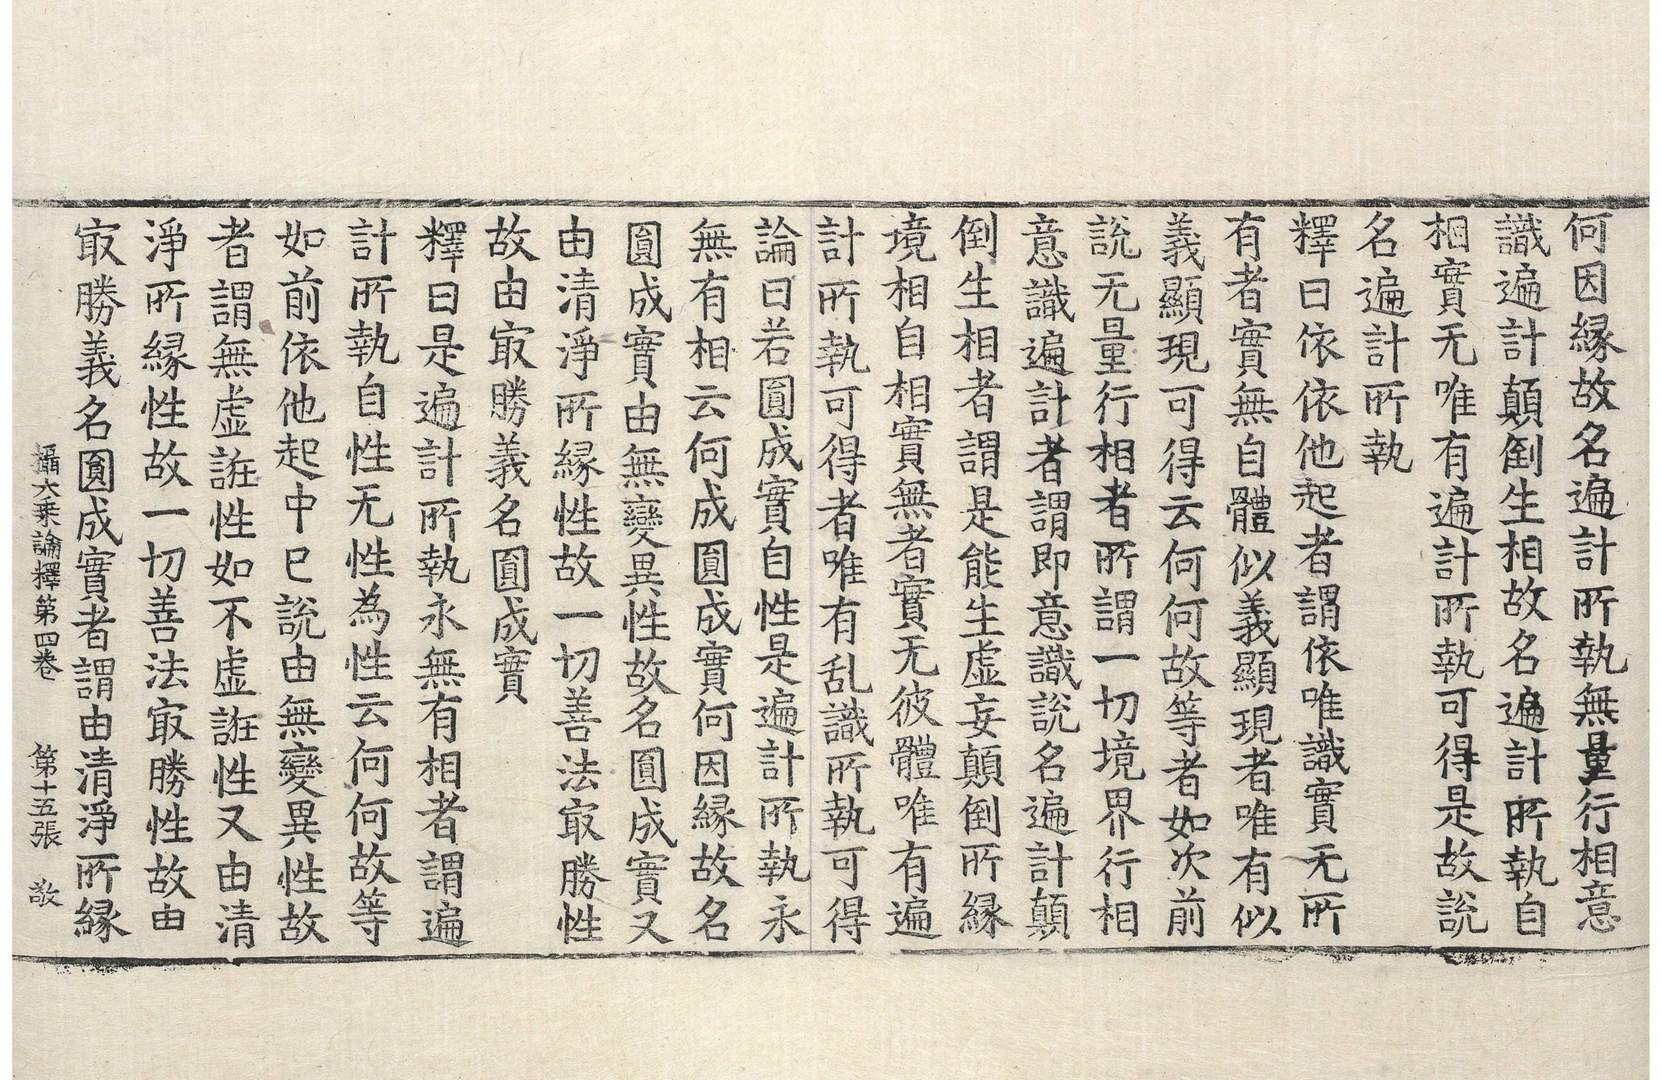 何因縁故名遍計所執無量行相意
識遍計顛倒生相故名遍計所執自
相實无唯有遍計所執可得是故說
名遍計所執
釋曰依依他起者謂依唯識實无所
有者實無自體似義顯現者唯有似
義顯現可得云何何故等者如次前
說无量行相者所謂一切境界行相
意識遍計者謂即意識說名遍計顛
倒生相者謂是能生虛妄顛倒所縁
境相自相實無者實无彼體唯有遍
計所執可得者唯有乱識所執可得
論曰若圓成實自性是遍計所執永
無有相云何成圓成實何因縁故名
圓成實由無變異性故名圓成實又
由清淨所縁性故一切善法㝡勝性
故由㝡勝義名圓成實
釋曰是遍計所執永無有相者謂遍
計所執自性无性為性云何何故等
如前依他起中已說由無變異性故
者謂無虛誑性如不虛誑性又由清
淨所縁性故一切善法㝡勝性故由
㝡勝義名圓成實者謂由清淨所縁
攝大乘論釋第四卷 第十五張 敬